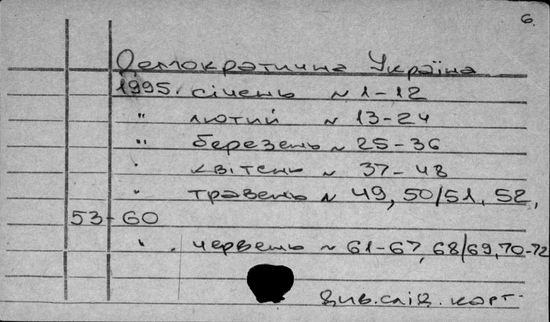 6.
Демократична Україна
1995. січень N 1-12
" лютий N 13-24
" березень N 25-36
" квітень N 37-48
" травень N 49, 50/51, 52,
53-60
" червень N 61-67, 68/69, 70-72
див. слід. карт.